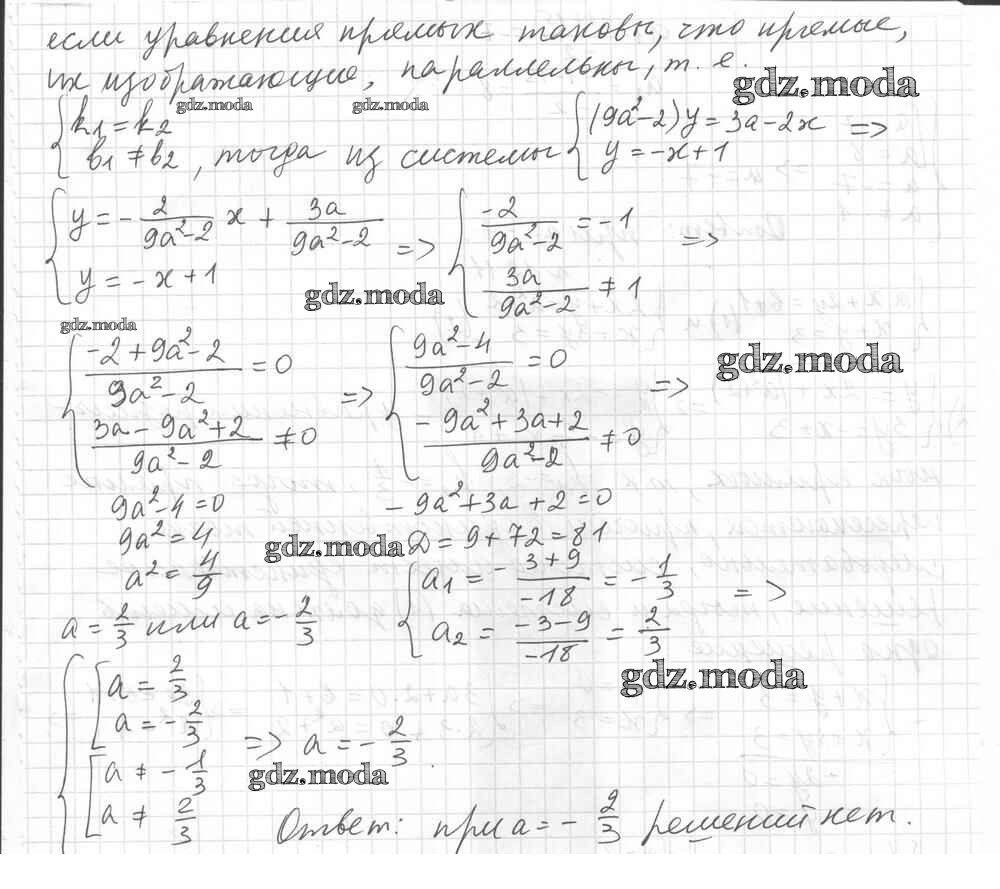 если уравнения прямых таковы, что прямые,
их изображающие, параллельны, т. е.
gdz.moda
gdz.moda gdz.moda
{ k₁ = k₂
b₁ ≠ b₂, тогда из системы { (9a²-2)y = 3a - 2x
y = -x + 1 =>
{ y = - 2/(9a²-2) x + 3a/(9a²-2)
y = -x + 1 => { -2/(9a²-2) = -1
3a/(9a²-2) ≠ 1 =>
gdz.moda
gdz.moda
{ (-2 + 9a² - 2)/(9a² - 2) = 0
(3a - 9a² + 2)/(9a² - 2) ≠ 0 => { (9a² - 4)/(9a² - 2) = 0
(-9a² + 3a + 2)/(9a² - 2) ≠ 0 =>
gdz.moda
9a² - 4 = 0 -9a² + 3a + 2 = 0
9a² = 4 gdz.moda D = 9 + 72 = 81
a² = 4/9 { a₁ = (-3+9)/(-18) = -1/3 =>
a = 2/3 или a = -2/3 a₂ = (-3-9)/(-18) = 2/3
gdz.moda
{ [ a = 2/3
a = -2/3
[ a ≠ -1/3
a ≠ 2/3 => a = -2/3.
gdz.moda
Ответ: при a = -2/3 решений нет.